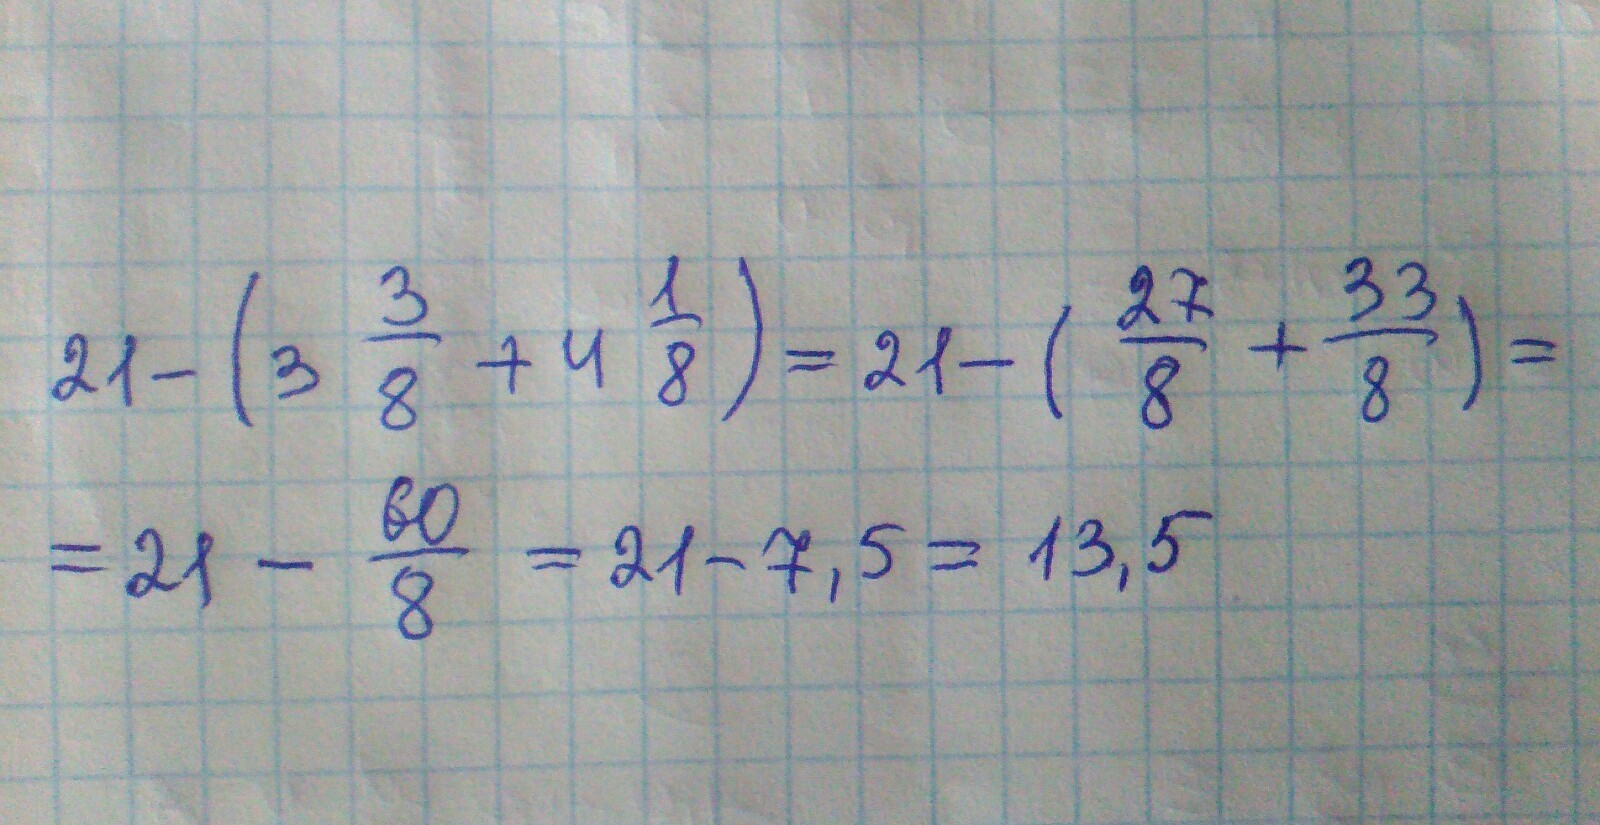 21 - (3 3/8 + 4 1/8) = 21 - (27/8 + 33/8) =
= 21 - 60/8 = 21 - 7,5 = 13,5